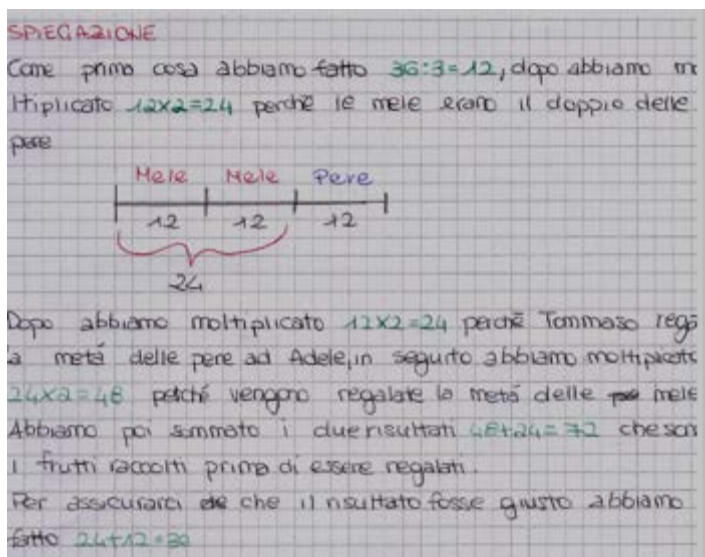 SPIEGAZIONE
Come prima cosa abbiamo fatto 36:3=12, dopo abbiamo mo
ltiplicato 12x2=24 perchè le mele erano il doppio delle
pere
Mele Mele Pere
12 12 12
24
Dopo abbiamo moltiplicato 12x2=24 perchè Tommaso rega
a metá delle pere ad Adele, in seguito abbiamo moltiplicato
24x2=48 perché vengono regalate la metá delle mele
Abbiamo poi sommato i due risultati 48+24=72 che son
i frutti raccolti prima di essere regalati.
Per assicurarci che il risultato fosse giusto abbiamo
fatto 24+12=36